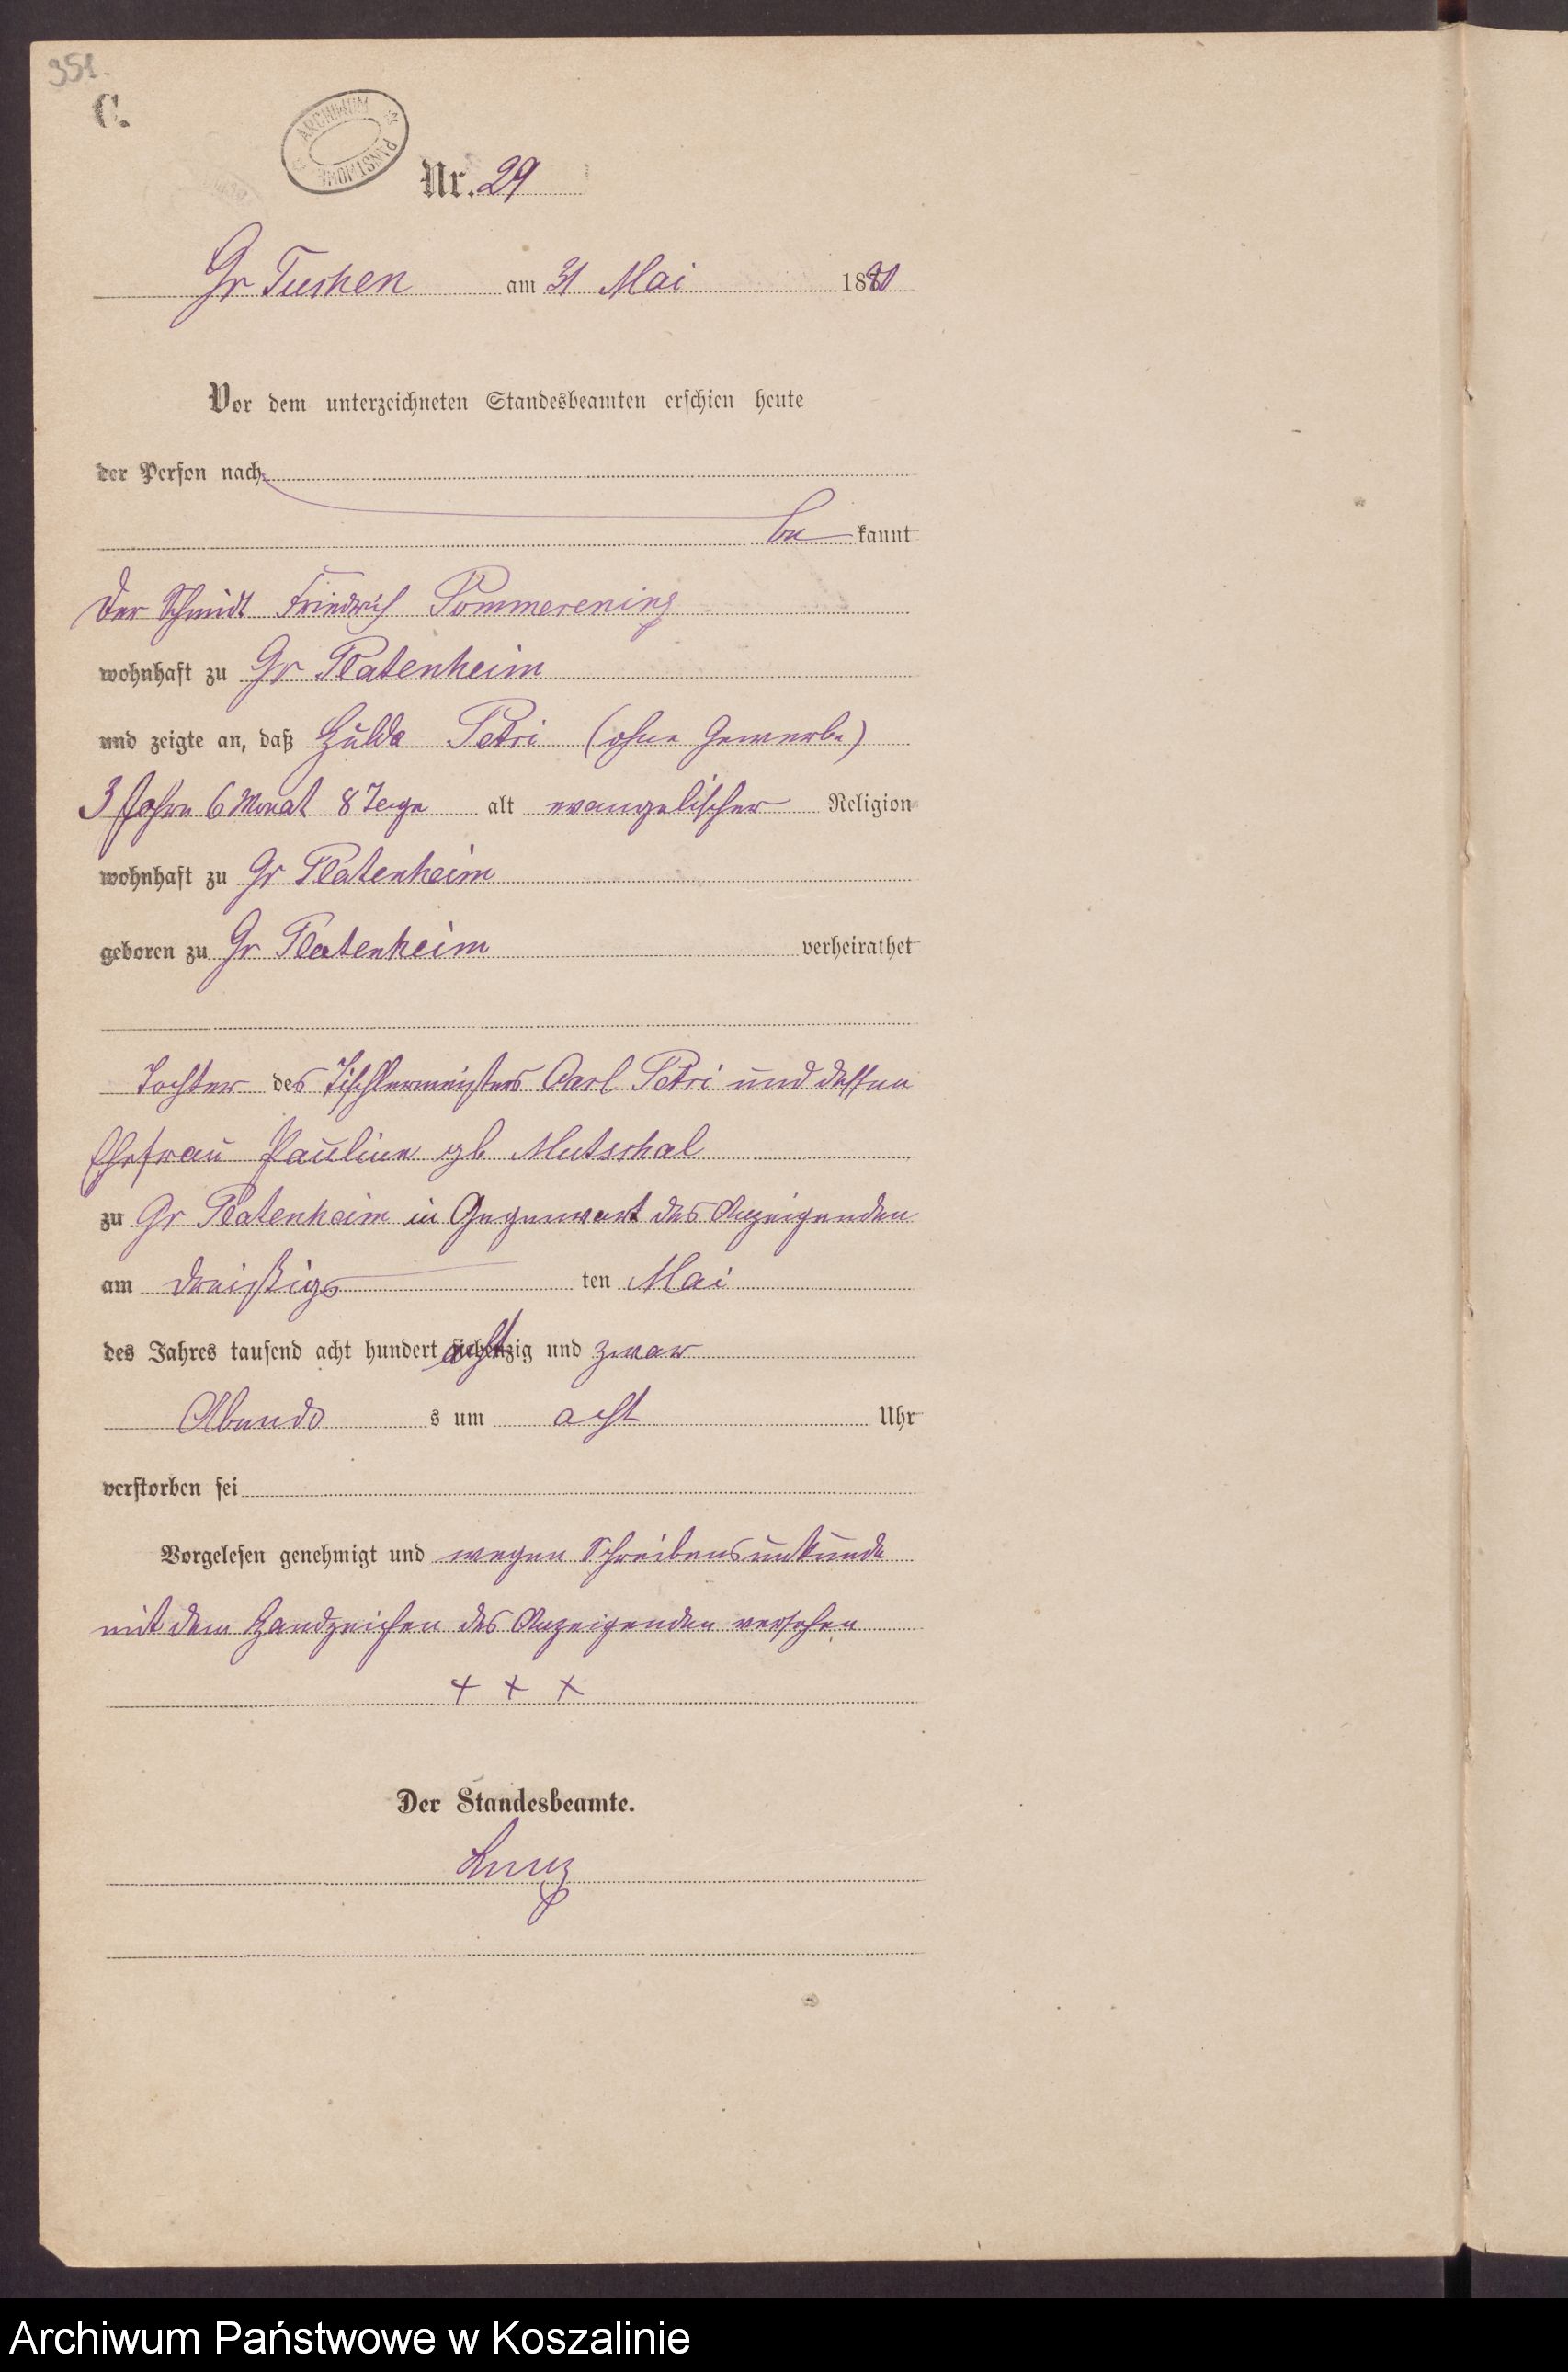 351.
C.
ARCHIWUM PAŃSTWOWE
Nr. 29
Gr Tuchen am 31 Mai 1880
Vor dem unterzeichneten Standesbeamten erschien heute
der Person nach
be kannt
der Schmidt Friedrich Pommerening
wohnhaft zu Gr Platenheim
und zeigte an, daß Hulda Petri (ohne Gewerbe)
3 Jahre 6 Monat 8 Tage alt evangelischer Religion
wohnhaft zu Gr Platenheim
geboren zu Gr Platenheim verheirathet
Tochter des Tischlermeisters Carl Petri und dessen
Ehefrau Pauline gb Mutschal
zu Gr Platenheim in Gegenwart des Anzeigenden
am dreißigs ten Mai
des Jahres tausend acht hundert achtzig und zwar
Abends s um acht Uhr
verstorben sei
Vorgelesen genehmigt und wegen Schreibensunkunde
mit dem Handzeichen des Anzeigenden versehen
+ + +
Der Standesbeamte.
Archiwum Państwowe w Koszalinie